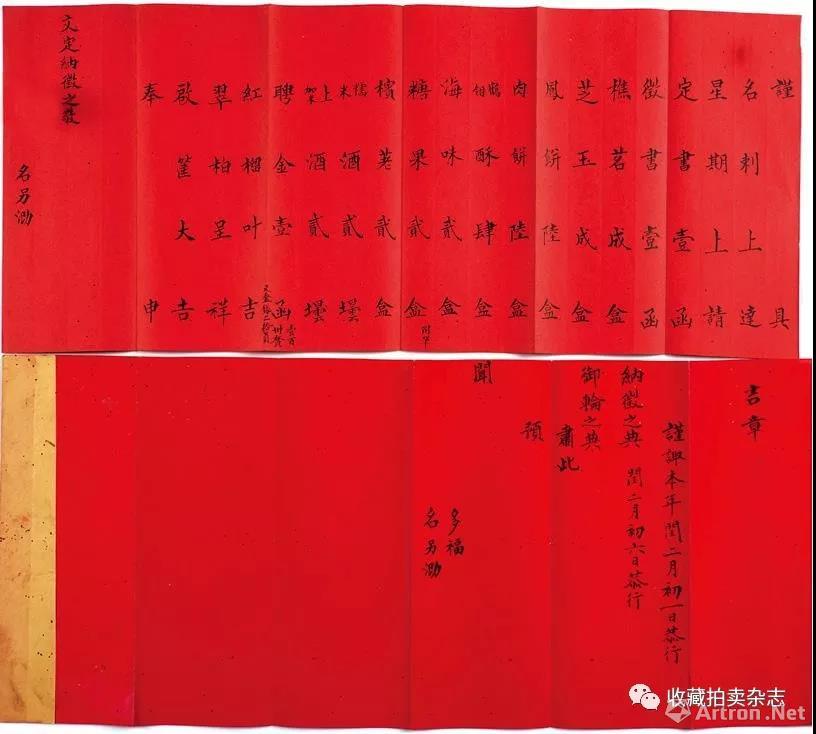 謹具
名刺上達
星期上請
定書壹函
徵書壹函
樵茗成盒
芝玉成盒
鳳餅陸盒
肉餅陸盒
酥肆盒
海味貳盒
糖果貳盒
附单
檳荖貳盒
糯米酒貳壜
上酒貳壜
聘金壹函
紅榴叶吉
翠柏呈祥
啟篚大吉
奉申
文定納徵之敬
名另泐
吉章
謹諏本年閏二月初一日恭行
納徵之典 閏二月初六日恭行
御輪之典
肅此
預
聞
多福
名另泐
收藏拍卖杂志
Artron.Net